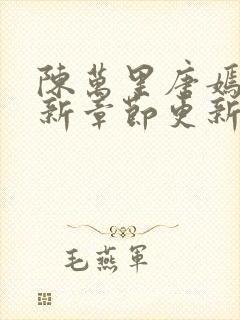 陳萬里唐嫣
新章節更新
毛燕軍